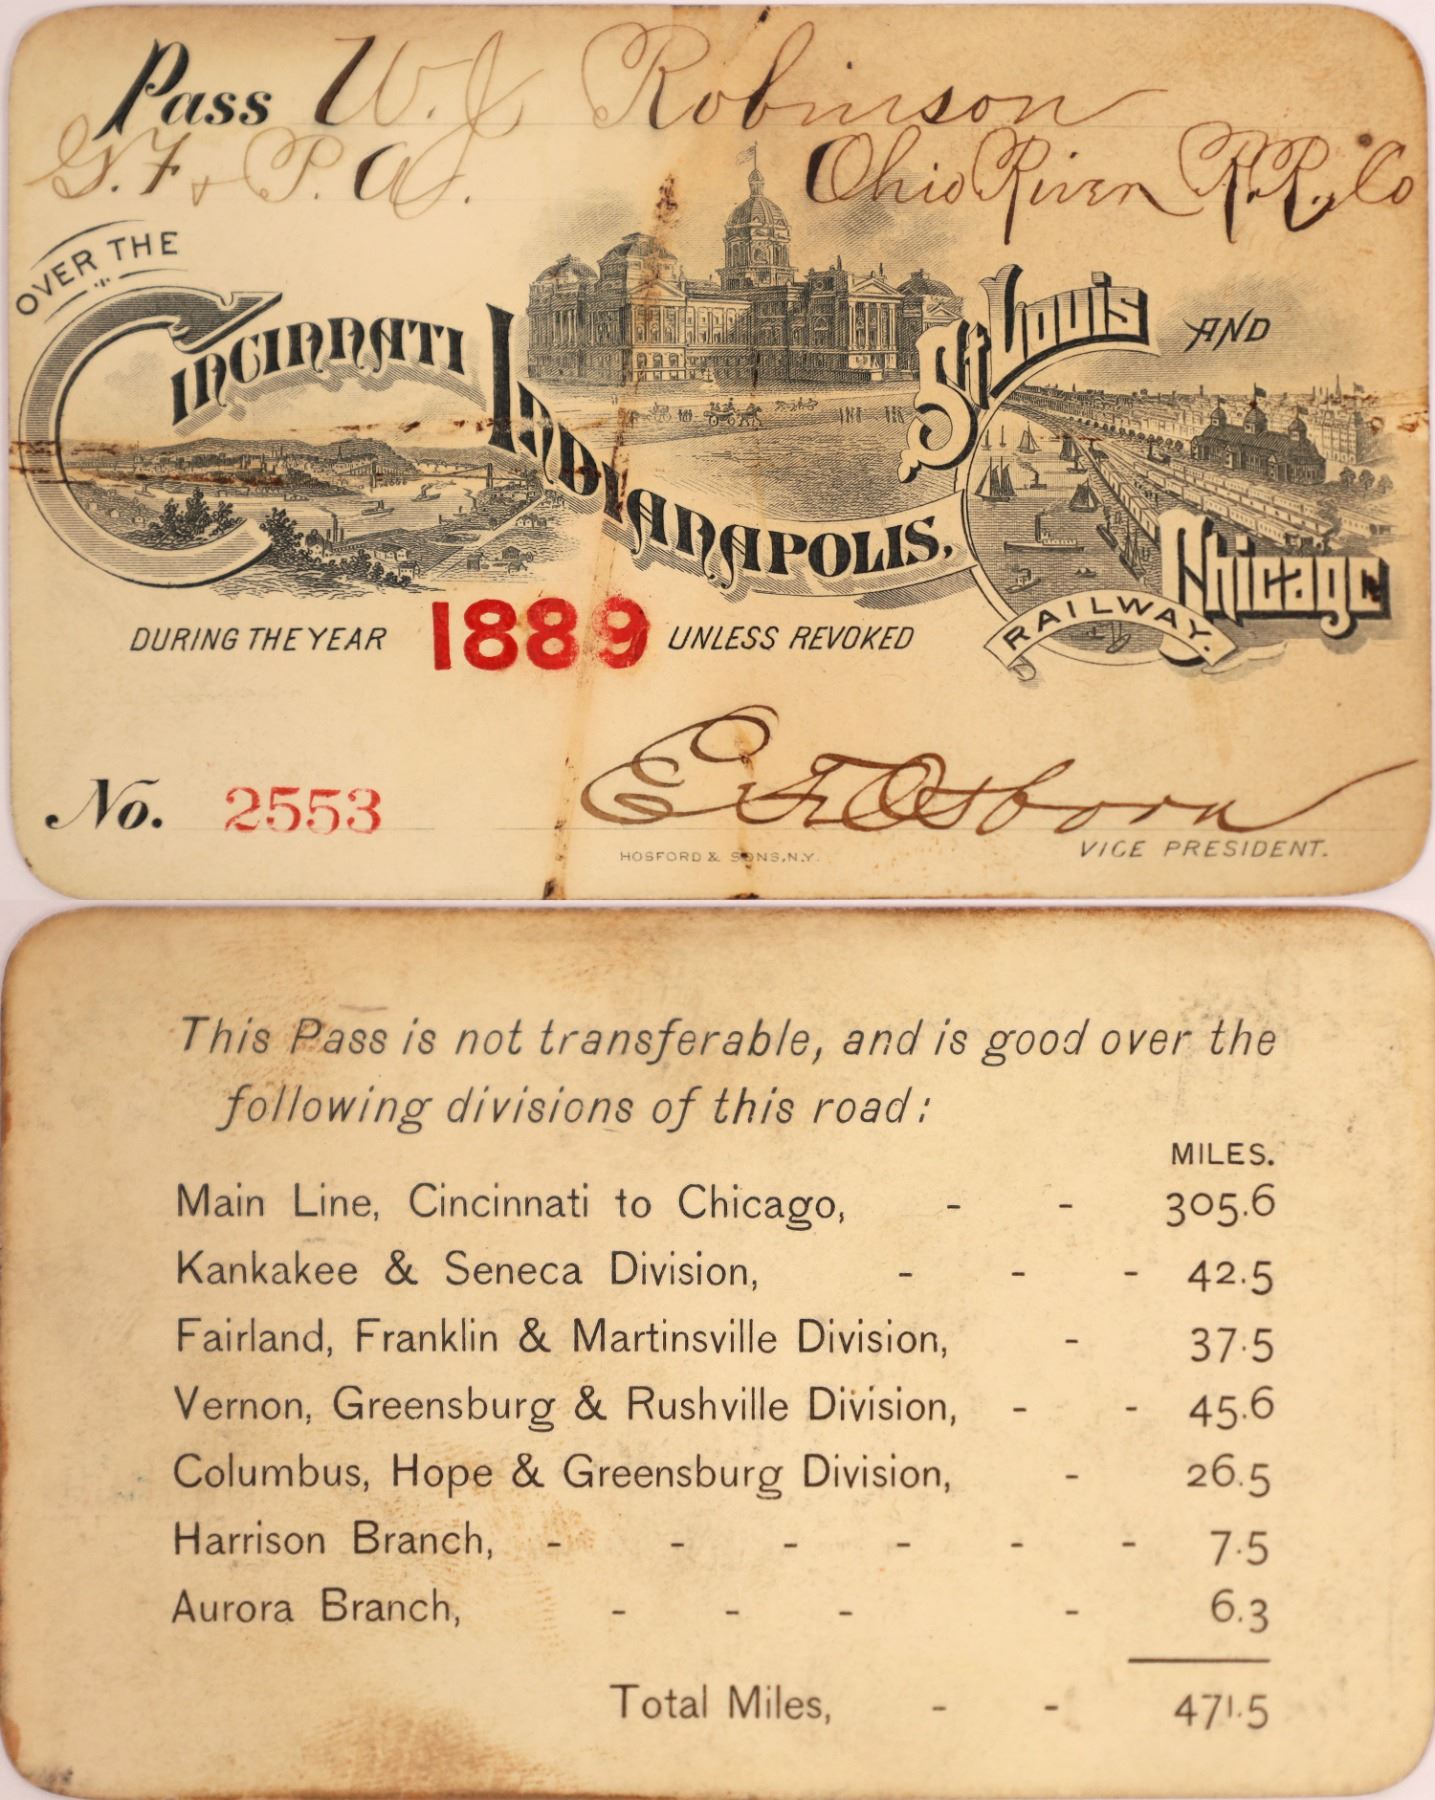 Pass W. J. Robinson
G. F. & P. A. Ohio River R.R. Co
OVER THE
CINCINNATI INDIANAPOLIS, St Louis AND Chicago
RAILWAY.
DURING THE YEAR 1889 UNLESS REVOKED
No. 2553 E. F. Osborn
VICE PRESIDENT.
HOSFORD & SONS, N.Y.
This Pass is not transferable, and is good over the
following divisions of this road:
MILES.
Main Line, Cincinnati to Chicago, - - 305.6
Kankakee & Seneca Division, - - - 42.5
Fairland, Franklin & Martinsville Division, - 37.5
Vernon, Greensburg & Rushville Division, - - 45.6
Columbus, Hope & Greensburg Division, - 26.5
Harrison Branch, - - - - - - 7.5
Aurora Branch, - - - - 6.3
Total Miles, - - 471.5